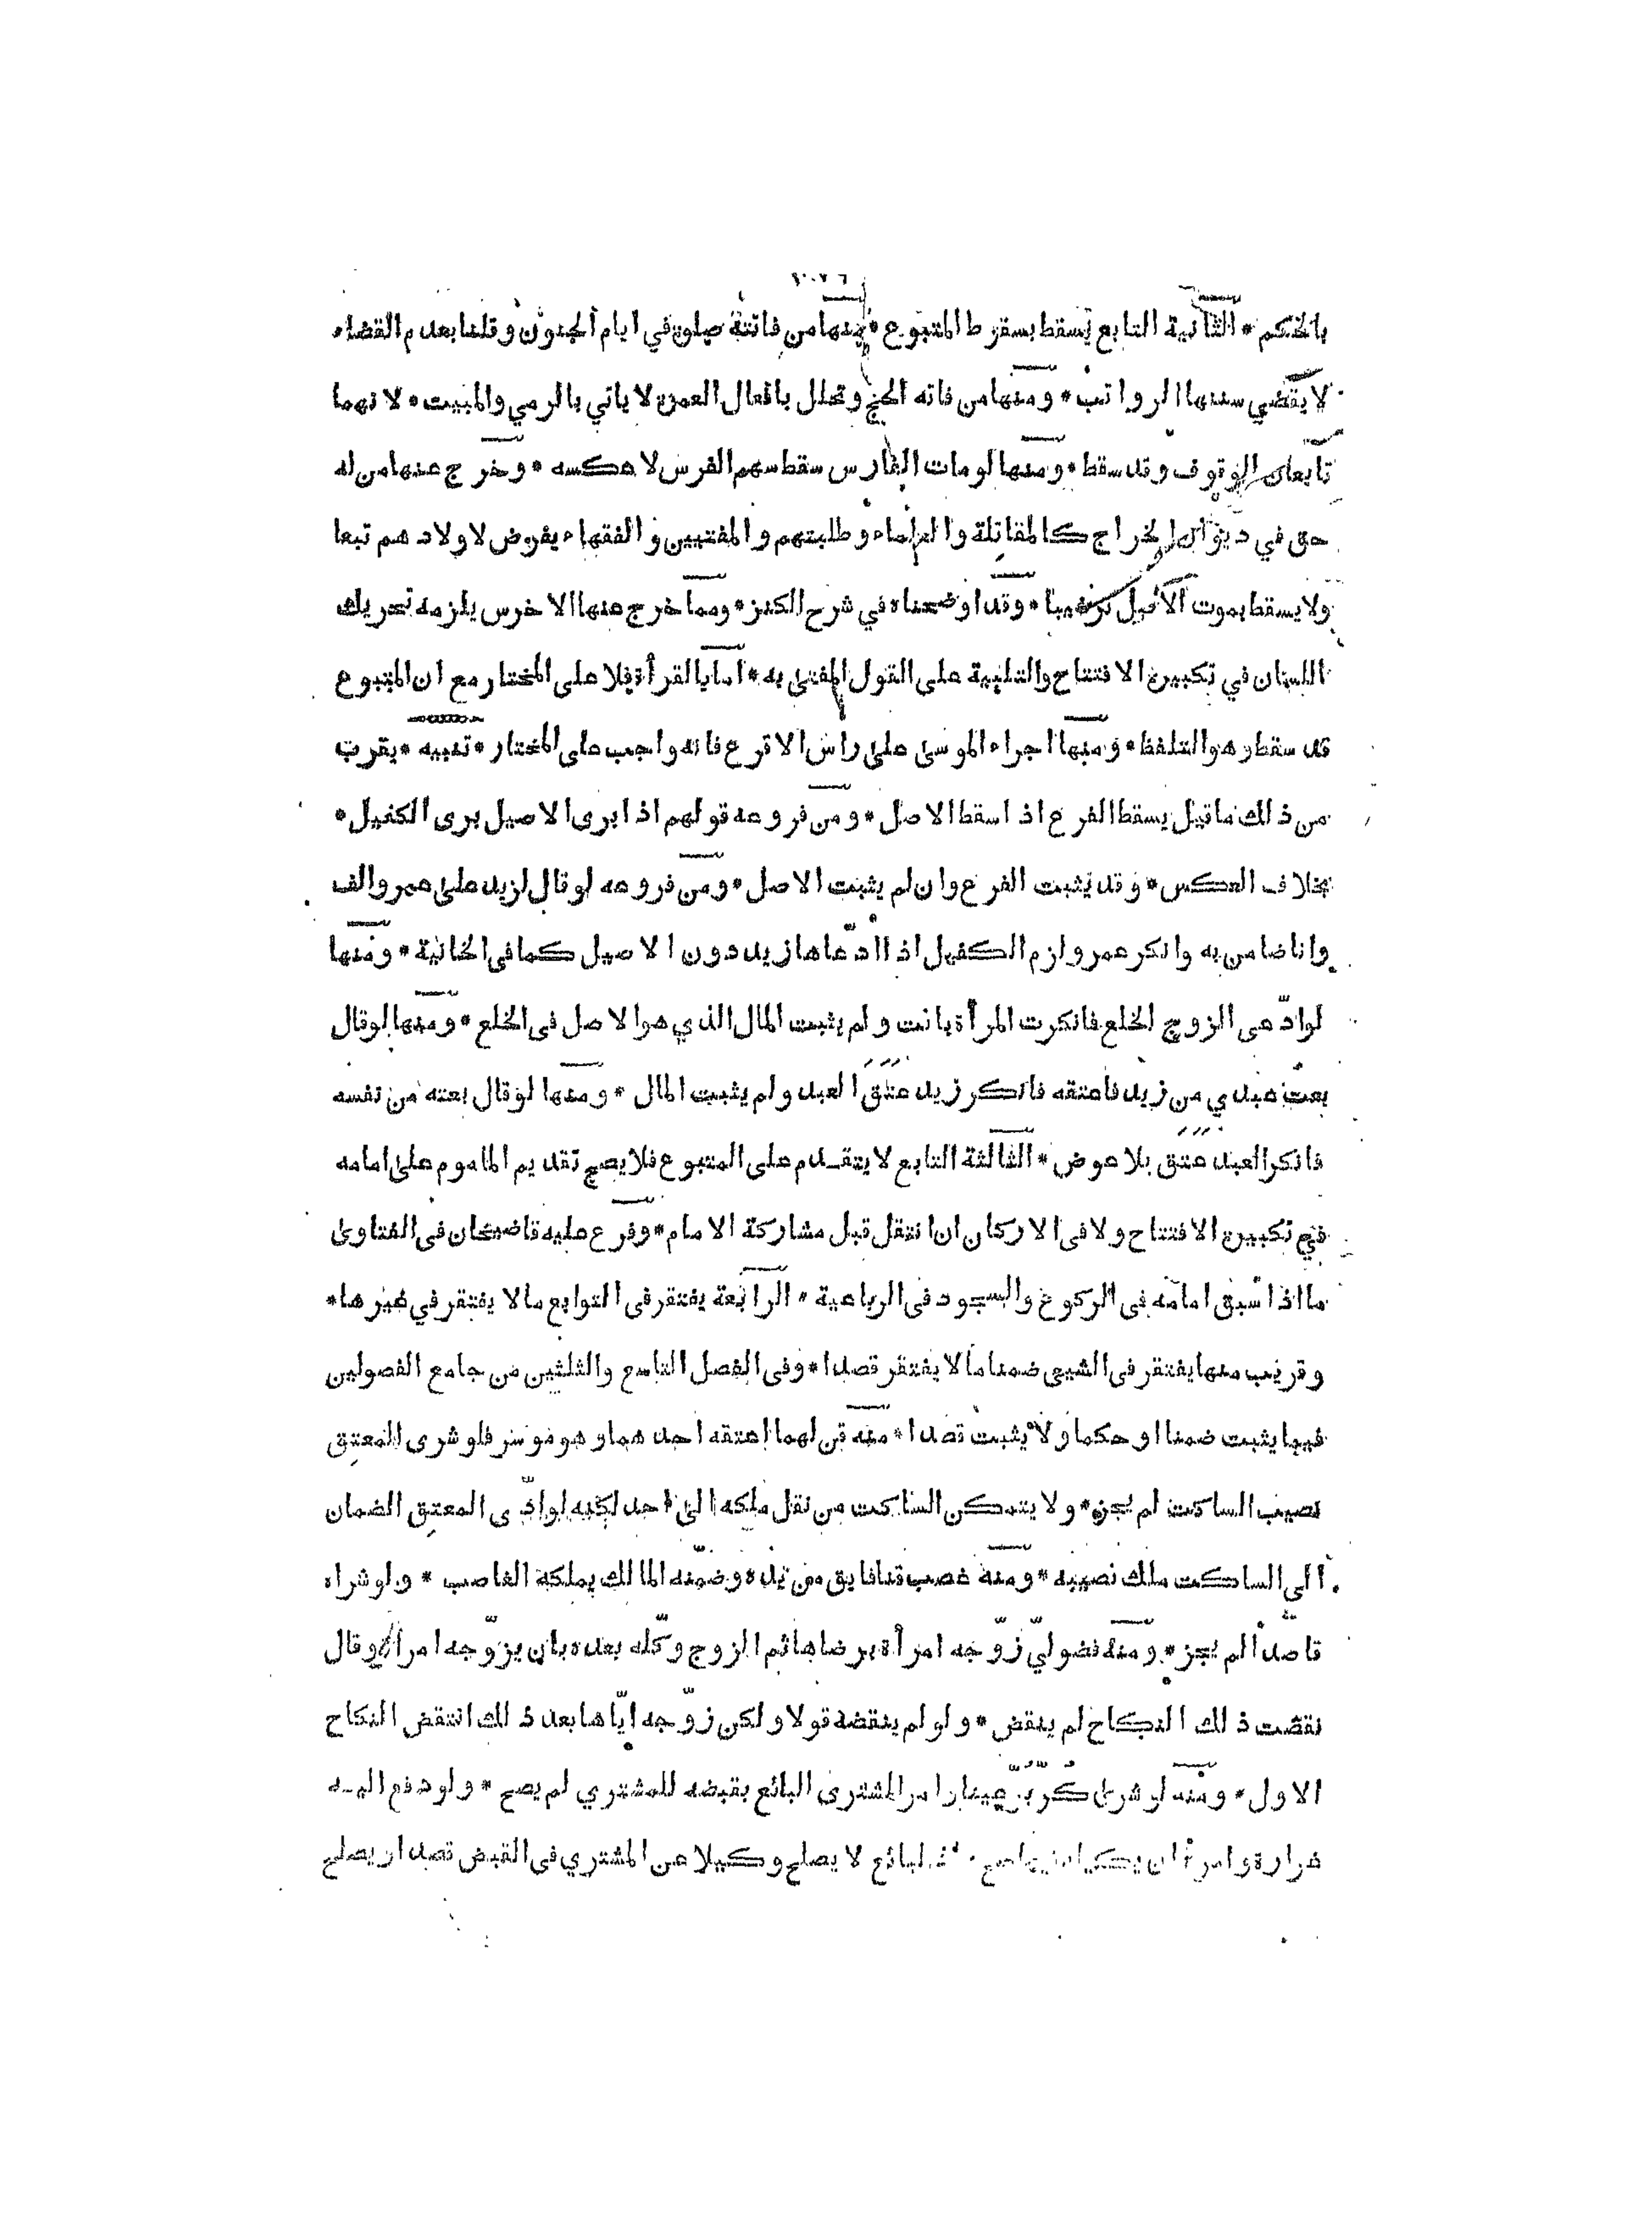 بالحكم * الثانية التابع يسقط بسقوط المتبوع * منها من فاتته صلوة في ايام الجنون وقلنا بعدم القضاء
لا يقضي سننها الرواتب * ومنها من فاته الحج وتحلل بافعال العمرة لا ياتي بالرمي والمبيت * لانهما
تابعان الوقوف وقد سقط * ومنها لو مات الفارس سقط سهم الفرس لا عكسه * وخرج عنها من له
حق في ديوان الخراج كالمقاتلة والعلماء وطلبتهم والمفتيين والفقهاء يفرض لاولادهم تبعا
ولا يسقط بموت الاصيل ترغيبا * وقد اوضحناه في شرح الكنز * ومما خرج عنها الاخرس يلزمه تحريك
اللسان في تكبيرة الافتتاح والتلبية على القول المفتى به * اما بالقرأة فلا على المختار مع ان المتبوع
قد سقط وهو التلفظ * ومنها اجراء الموسى على راس الاقرع فانه واجب على المختار * تنبيه * يقرب
من ذلك ما قيل يسقط الفرع اذا سقط الاصل * ومن فروعه قولهم اذا برى الاصيل برى الكفيل *
بخلاف العكس * وقد يثبت الفرع وان لم يثبت الاصل * ومن فروعه لو قال لزيد على عمرو الف
وانا ضامن به وانكر عمرو لزم الكفيل اذا ادّعاها زيد دون الاصيل كما فى الخانية * ومنها
لو ادّعى الزوج الخلع فانكرت المرأة بانت ولم يثبت المال الذي هو الاصل فى الخلع * ومنها لو قال
بعت عبدي من زيد فاعتقه فانكر زيد عَتَقَ العبد ولم يثبت المال * ومنها لو قال بعته من نفسه
فانكر العبد عَتَقَ بلا عوض * الثالثة التابع لا يتقدم على المتبوع فلا يصح تقديم الماموم على امامه
في تكبيرة الافتتاح ولا فى الاركان ان انتقل قبل مشاركة الامام * وفرع عليه قاضيخان فى الفتاوى
ما اذا سبق امامه فى الركوع والسجود فى الرباعية * الرابعة يفتقر فى التوابع ما لا يفتقر في غيرها *
وقريب منها يفتقر فى الشيئ ضمنا ما لا يفتقر قصدا * وفى الفصل التاسع والثلثين من جامع الفصولين
فيما يثبت ضمنا او حكما ولا يثبت قصدا * منه قن لهما اعتقه احدهما وهو موسر فلو شرى المعتق
نصيب الساكت لم يجز * ولا يتمكن الساكت من نقل ملكه الى احد لكنه لو ادّى المعتق الضمان
الى الساكت ملك نصيبه * ومنه غصب قنا فابق من يده وضمّنه المالك يملكه الغاصب * ولو شراه
قاصدا لم يجز * ومنه فضوليّ زوّجه امرأة برضاها ثم الزوج وكّله بعده بان يزوّجه امرأة وقال
نقضت ذلك النكاح لم ينقض * ولو لم ينقضه قولا ولكن زوّجه ايّاها بعد ذلك انتقض النكاح
الاول * ومنه لو شرى كُرّ بُرّ عينا وامر المشترى البائع بقبضه للمشتري لم يصح * ولو دفع اليه
غرارة وامره ان يكيله فيها صح لبائع لا يصلح وكيلا عن المشتري فى القبض قصدا ويصلح